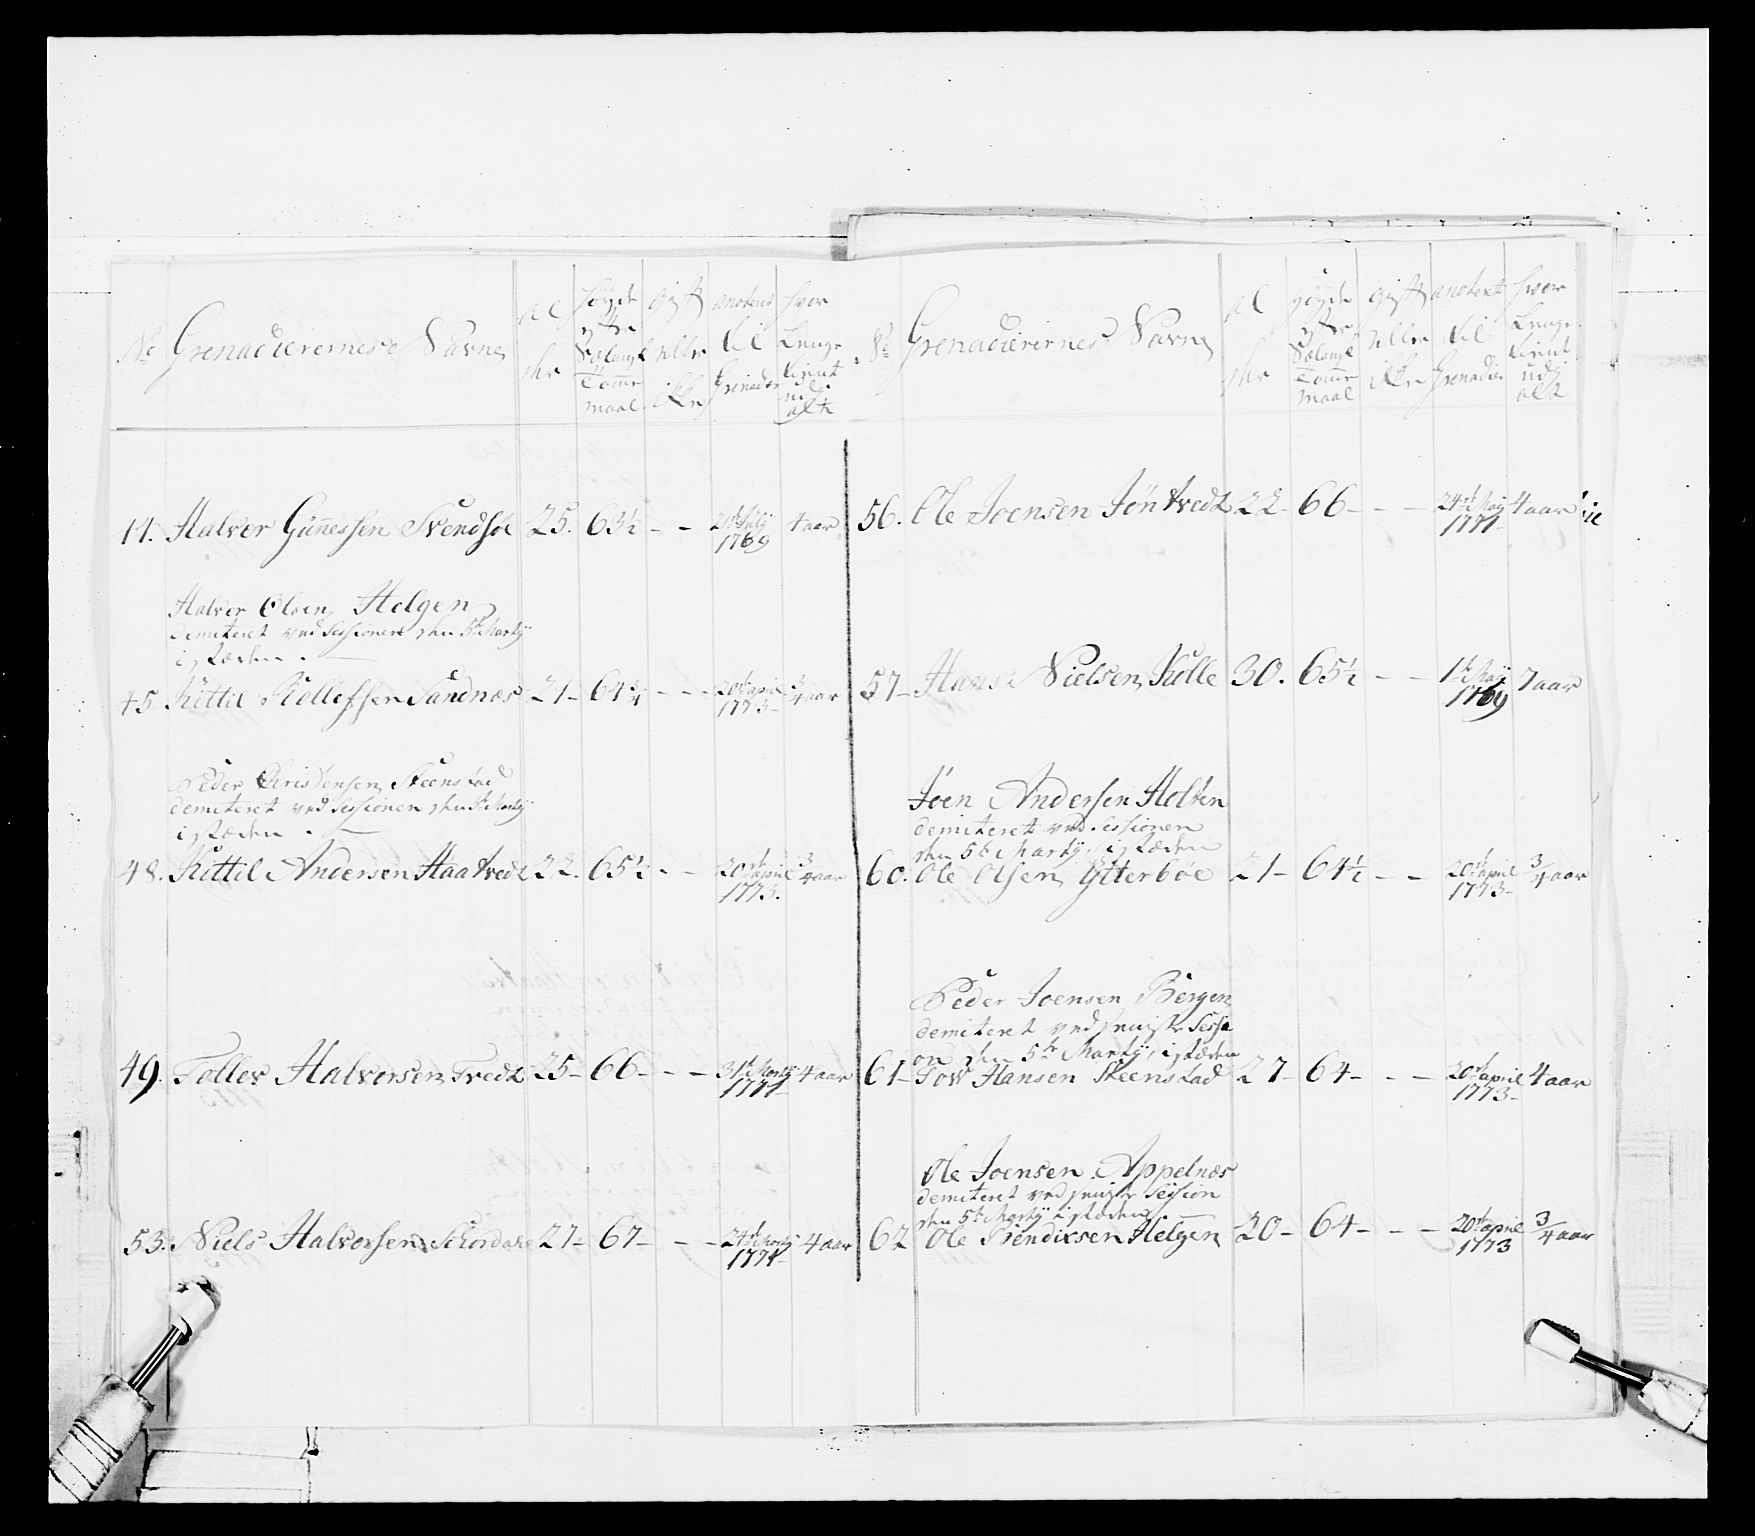 No Grenadierernes Navne
al
der
høyde
efter
Sælands
Tomme
maal
gift
eller
ikke
antent
til
Grenader
hvor
Lenge
tient
udj
alt
44. Halvor Gunnessen Svendsøe 25. 63½ - - 1769 4 aar
Halvor Olsen Helgen
demiteret ved Sessionen den 5te Martij
i stæden.
45 Kittil Kollefsen Sandnæs 21- 64¾ - - 20de april 1773- ¾ aar
Peder Christensen Skeenstad
demiteret ved Sessionen den 5te Martij
i stæden.
48. Kittil Andersen Haatvedt 22. 65½ - - 20de april 1773. ¾ aar
49. Tollev Halvorsen Tvedt 25- 66- - - 31te Martij 1771- 4 aar
53. Niels Halvorsen 27- 67- - - 24de Martij 1771- 4 aar
No Grenadierernes Navne
al
der
høyde
efter
Sælands
Tomme
maal
gift
eller
ikke
anotert
til
Grenadier
hvor
Lenge
tient
udj
alt
56. Ole Joensen Jöntvedt 22- 66- - - 24de Maij 1771- 4 aar
57- Hans Nielsen Kolle 30. 65½ - - 1te Maij 1769 7 aar
Joen Andersen Holten
demiteret ved Sessionen
den 5te Martij, i stæden
60. Ole Olsen Ytterböe 21- 64½ - - 20de april 1773- ¾ aar
Peder Joensen Bergen
demiteret ved seniste Sessi
on den 5te Martij, i stæden
61- Tow Hansen Skeenstad 27- 64- - - 20de april 1773- 4 aar
Ole Joensen Appelnæs
demiteret ved seniste Session
den 5te Martij i stæden
62 Ole Bendixsen Helgen 20- 64- - - 20de april 1773 ¾ aar